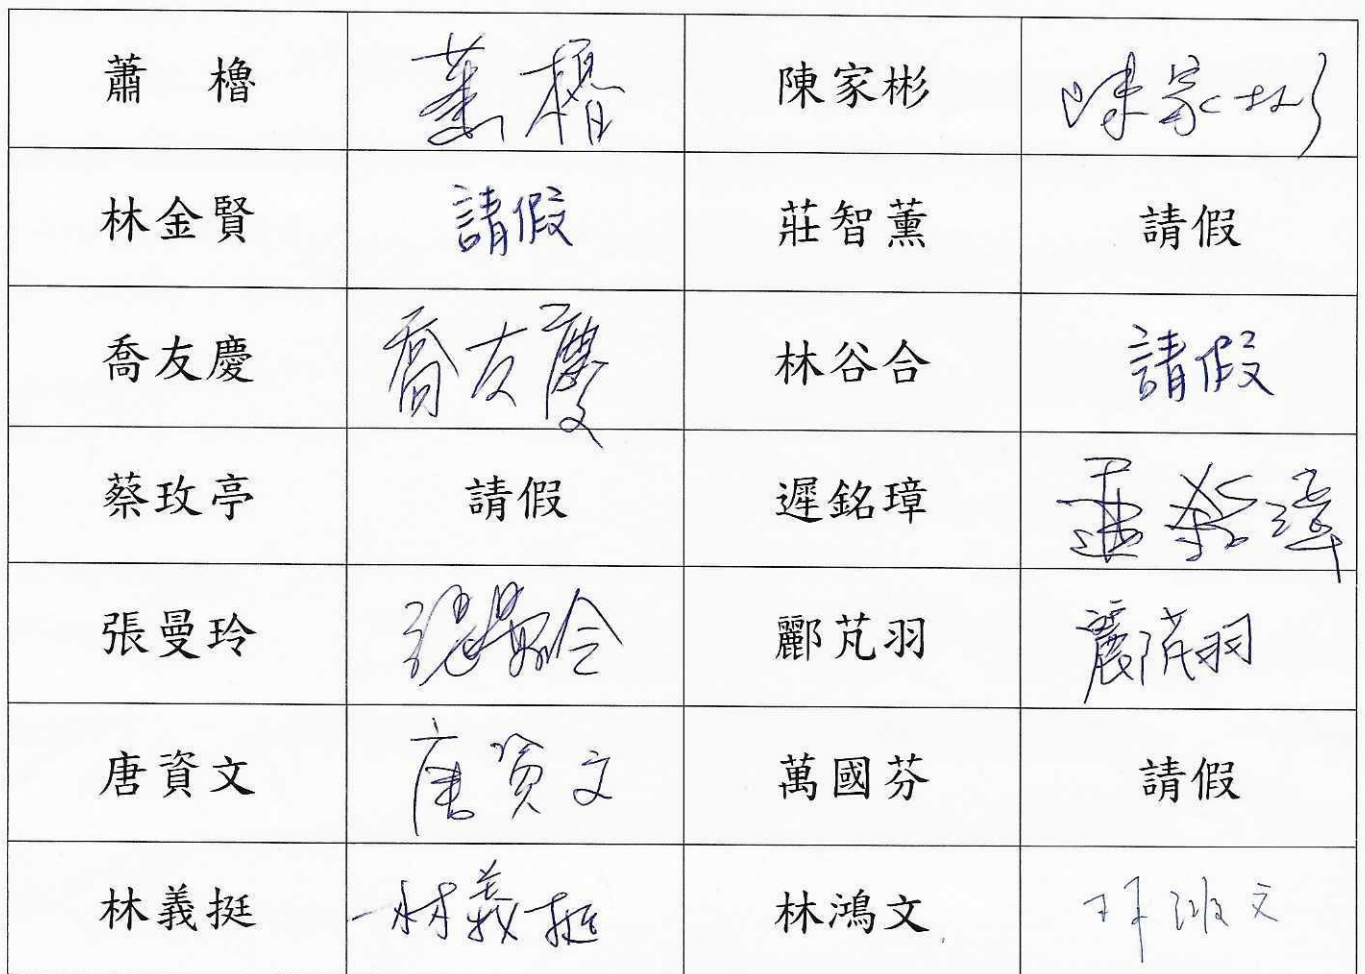 蕭 櫓 蕭櫓 陳家彬 陳家彬
林金賢 請假 莊智薰 請假
喬友慶 喬友慶 林谷合 請假
蔡玫亭 請假 遲銘璋 遲銘璋
張曼玲 張曼玲 酈芃羽 酈芃羽
唐資文 唐資文 萬國芬 請假
林義挺 林義挺 林鴻文 林鴻文